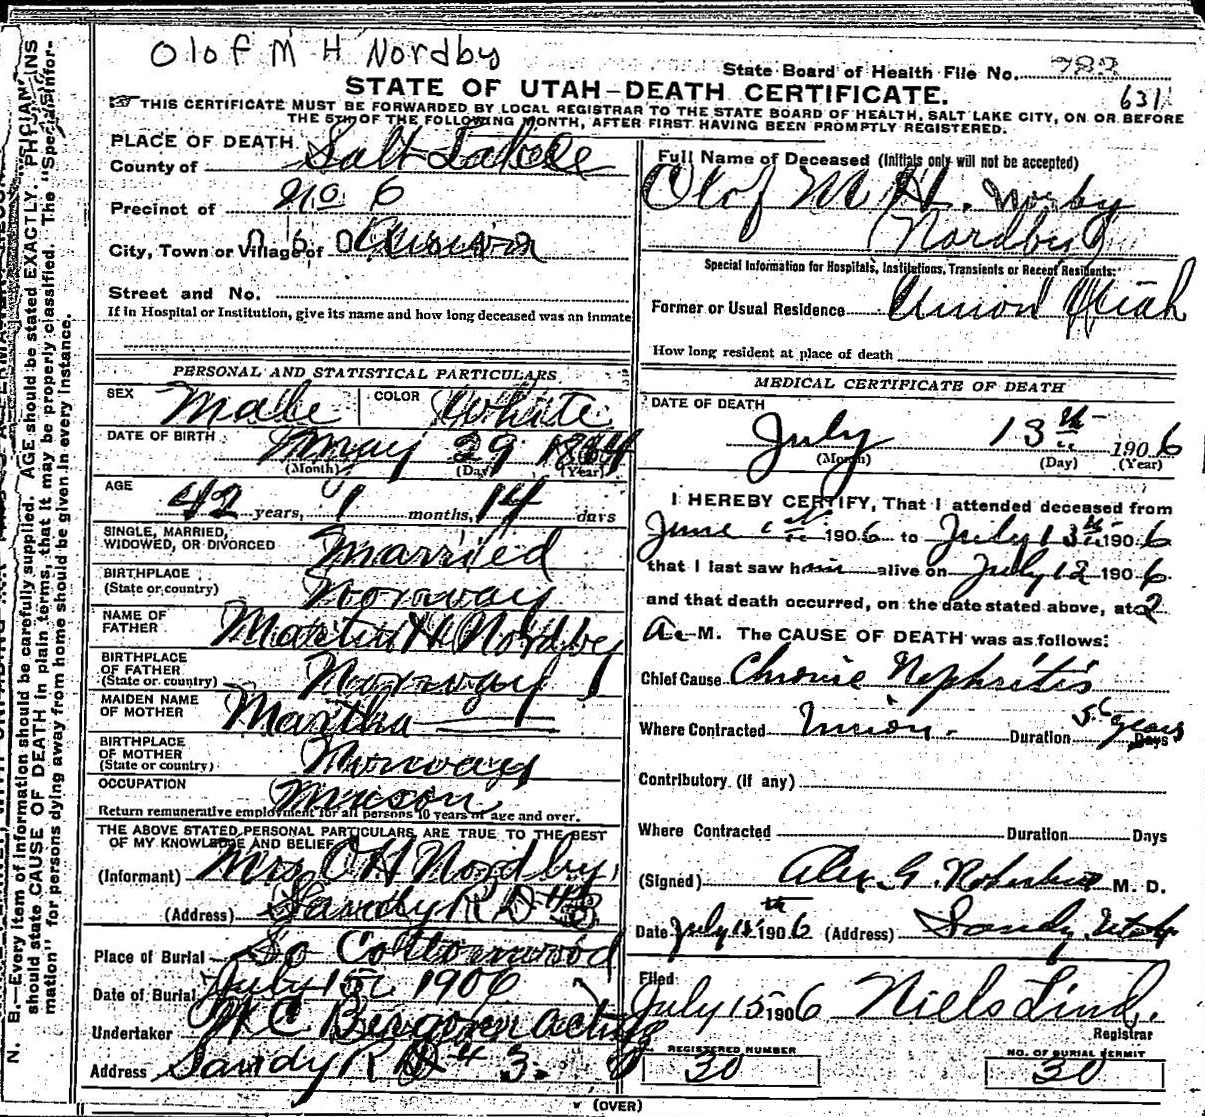 Olof M H Nordby
State Board of Health File No. 782
STATE OF UTAH—DEATH CERTIFICATE.
631
THIS CERTIFICATE MUST BE FORWARDED BY LOCAL REGISTRAR TO THE STATE BOARD OF HEALTH, SALT LAKE CITY, ON OR BEFORE
THE 5TH OF THE FOLLOWING MONTH, AFTER FIRST HAVING BEEN PROMPTLY REGISTERED.
PLACE OF DEATH
County of Salt Lake
Precinct of No 6
City, Town or Village of Union
Street and No.
If in Hospital or Institution, give its name and how long deceased was an inmate
PERSONAL AND STATISTICAL PARTICULARS
SEX Male COLOR White
DATE OF BIRTH May 29 1864
(Month) (Day) (Year)
AGE 42 years, 1 months, 14 days
SINGLE, MARRIED,
WIDOWED, OR DIVORCED Married
BIRTHPLACE
(State or country) Norway
NAME OF
FATHER Martin H Nordby
BIRTHPLACE
OF FATHER
(State or country) Norway
MAIDEN NAME
OF MOTHER Martha
BIRTHPLACE
OF MOTHER
(State or country) Norway
OCCUPATION Mason
Return remunerative employment for all persons 10 years of age and over.
THE ABOVE STATED PERSONAL PARTICULARS ARE TRUE TO THE BEST
OF MY KNOWLEDGE AND BELIEF
(Informant) Mrs O H Nordby
(Address) Sandy R D
Place of Burial So Cottonwood
Date of Burial July 15 1906
Undertaker W C Berg
Address Sandy R D # 3.
Full Name of Deceased (Initials only will not be accepted)
Olof M H. Norby
Nordby
Special Information for Hospitals, Institutions, Transients or Recent Residents:
Former or Usual Residence Union Utah
How long resident at place of death
MEDICAL CERTIFICATE OF DEATH
DATE OF DEATH
July 13th 1906
(Month) (Day) (Year)
I HEREBY CERTIFY, That I attended deceased from
June 1st 1906 to July 13th 1906
that I last saw him alive on July 12 1906
and that death occurred, on the date stated above, at 2
A. M. The CAUSE OF DEATH was as follows:
Chief Cause Chronic Nephritis
Where Contracted Union. Duration 5 years Days
Contributory (if any)
Where Contracted Duration Days
(Signed) Alex. G. M. D.
Date July 1906 (Address) Sandy, Utah
Filed
July 15 1906 Niels Lind,
Registrar
REGISTERED NUMBER
30
NO. OF BURIAL PERMIT
30
(OVER)
N. B.—Every item of information should be carefully supplied. AGE should be stated EXACTLY. PHYSICIANS
should state CAUSE OF DEATH in plain terms, that it may be properly classified. The "Special Infor-
mation" for persons dying away from home should be given in every instance.